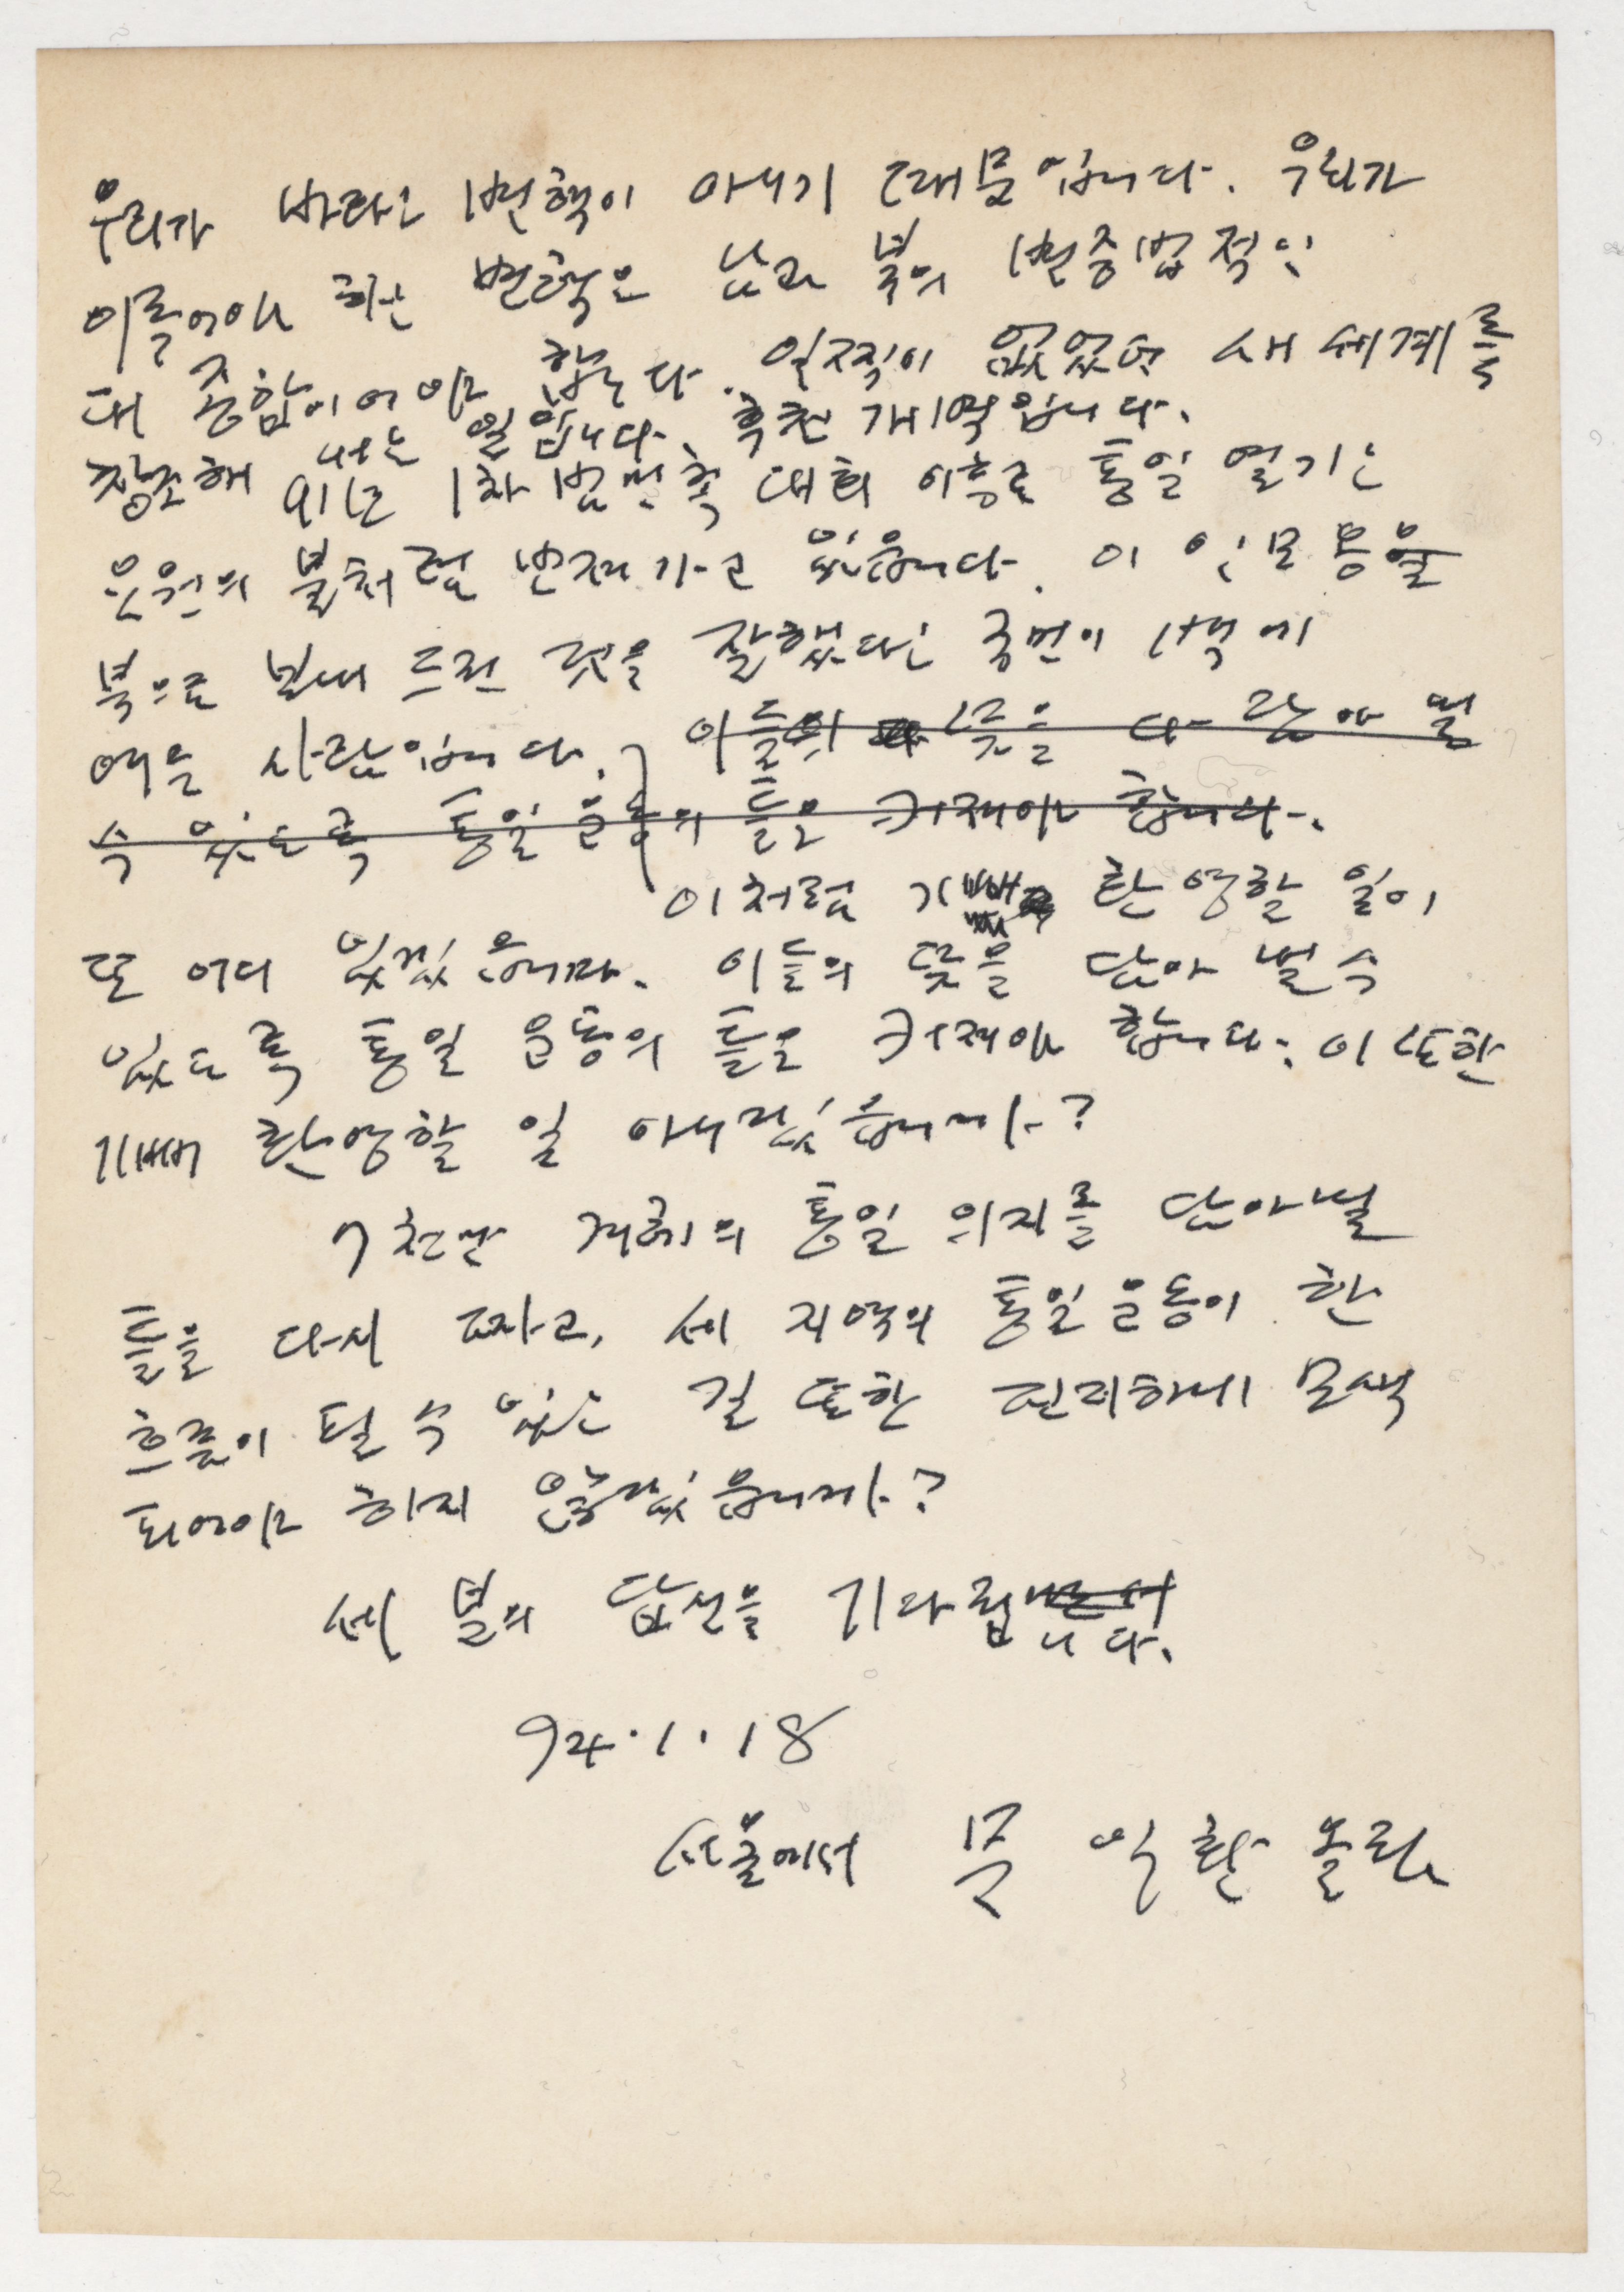 우리가 바라는 변혁이 아니기 때문입니다. 우리가
이룩어야 하는 변혁은 남과 북의 변증법적인
대 종합이어야 합니다. 일찍이 없었던 새 세계를
창조해 내는 일입니다. 후천개벽입니다.
91년 1차 범민족 대회 이후로 통일 열기는
요원의 불처럼 번져가고 있습니다. 이인모 옹을
북으로 보내 드린 것을 잘했다는 국민이 백에
여든 사람입니다. 이들의 뜻을 다 담아 낼
수 있도록 통일 운동의 틀을 키워야 합니다.
이처럼 기뻐 환영할 일이
또 어디 있겠습니까. 이들의 뜻을 담아 낼 수
있도록 통일 운동의 틀을 키워야 합니다. 이 또한
기뻐 환영할 일 아니겠습니까?
7천만 겨레의 통일 의지를 담아낼
틀을 다시 짜고, 세 지역의 통일 운동이 한
흐름이 될 수 있는 길 또한 진지하게 모색
되어야 하지 않겠습니까?
세 분의 답신을 기다립니다.
94.1.18
서울에서 문익환 올림